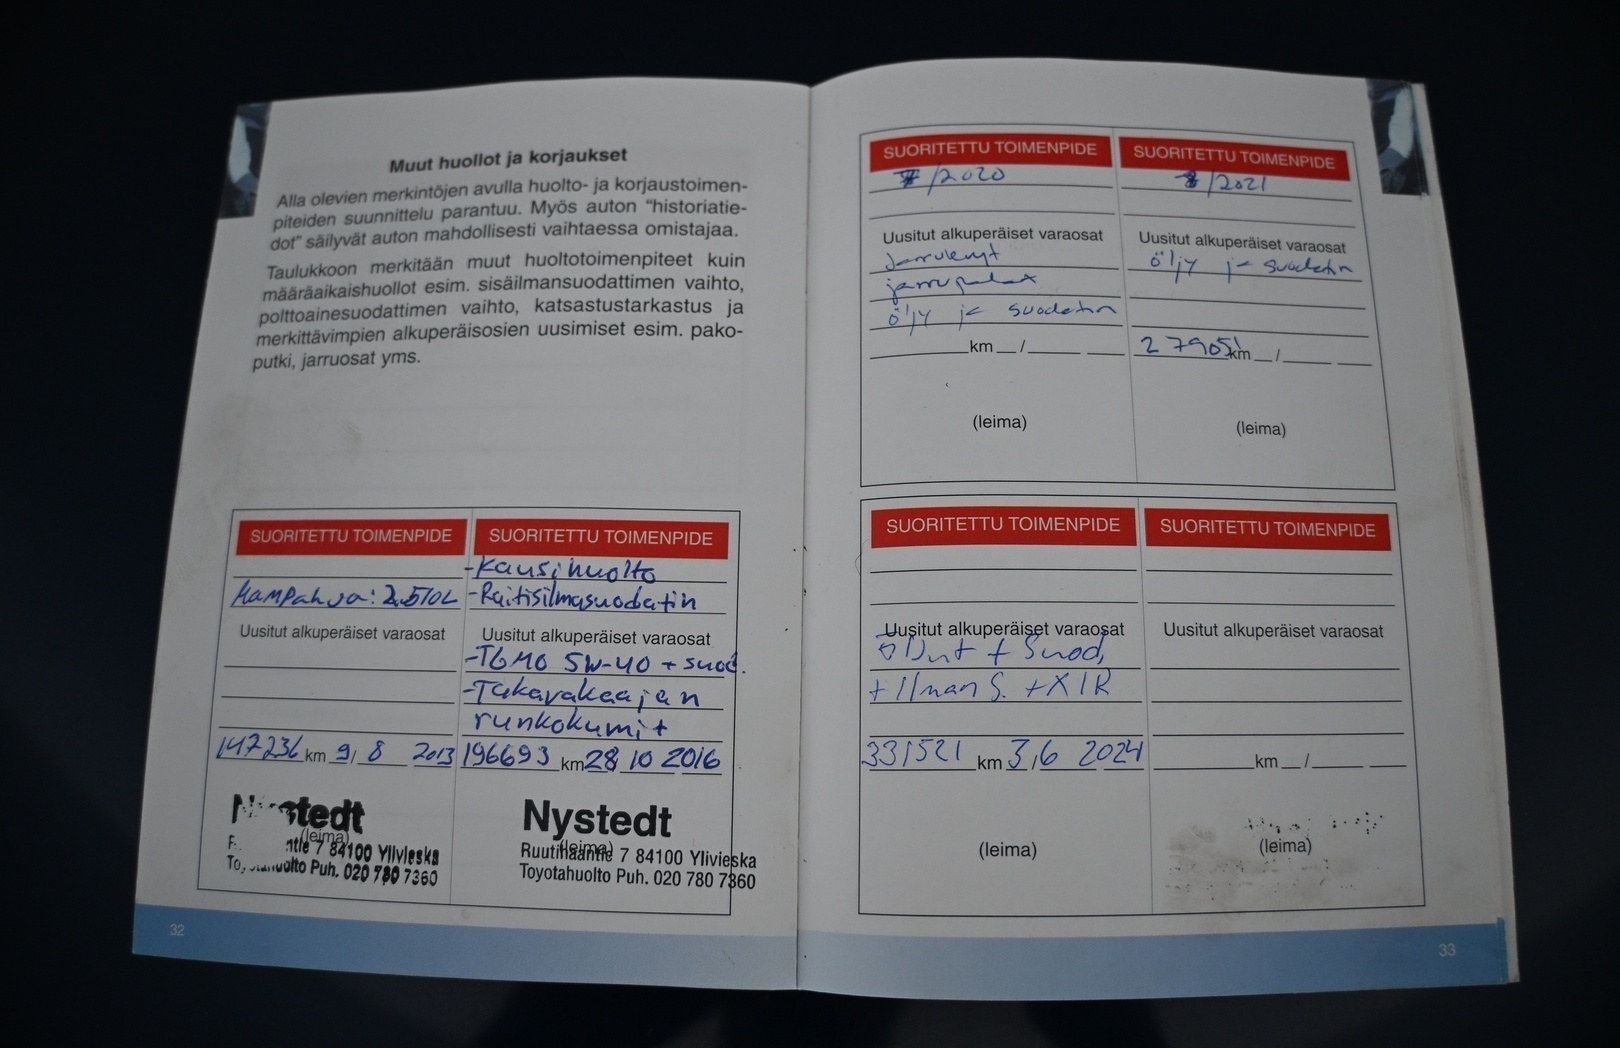 Muut huollot ja korjaukset
Alla olevien merkintöjen avulla huolto- ja korjaustoimen-
piteiden suunnittelu parantuu. Myös auton "historiatie-
dot" säilyvät auton mahdollisesti vaihtaessa omistajaa.
Taulukkoon merkitään muut huoltotoimenpiteet kuin
määräaikaishuollot esim. sisäilmansuodattimen vaihto,
polttoainesuodattimen vaihto, katsastustarkastus ja
merkittävimpien alkuperäisosien uusimiset esim. pako-
putki, jarruosat yms.
SUORITETTU TOIMENPIDE
Uusitut alkuperäiset varaosat
147236 km 9/8 2013
(leima)
84100 Ylivieska
Puh. 020 780 7360
SUORITETTU TOIMENPIDE
-Kausihuolto
-Raitisilmasuodatin
Uusitut alkuperäiset varaosat
-TGMO 5W-40 + suod.
-Takavakaajan
runkokumit
196693 km 28/10 2016
Nystedt
(leima)
Ruutihaantie 7 84100 Ylivieska
Toyotahuolto Puh. 020 780 7360
32
SUORITETTU TOIMENPIDE
/2020
Uusitut alkuperäiset varaosat
Jarrulevyt
jarrupalat
öljy ja suodatin
km /
(leima)
SUORITETTU TOIMENPIDE
/2021
Uusitut alkuperäiset varaosat
öljy ja suodatin
279051 km /
(leima)
SUORITETTU TOIMENPIDE
Uusitut alkuperäiset varaosat
+ Suod,
+ Ilman S. +
331521 km 3/6 2024
(leima)
SUORITETTU TOIMENPIDE
Uusitut alkuperäiset varaosat
km /
(leima)
33